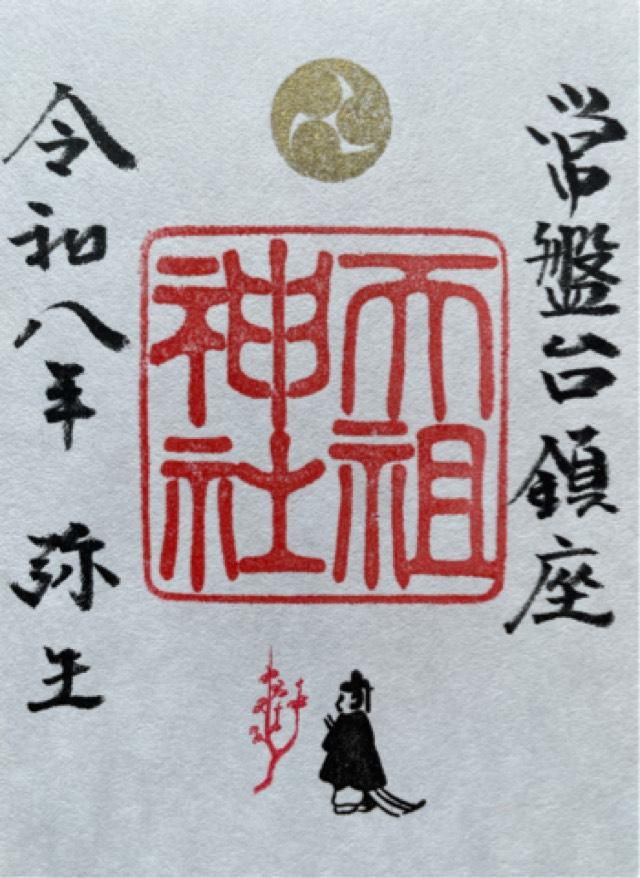 常盤台鎮座
天祖
神社
令和八年 弥生